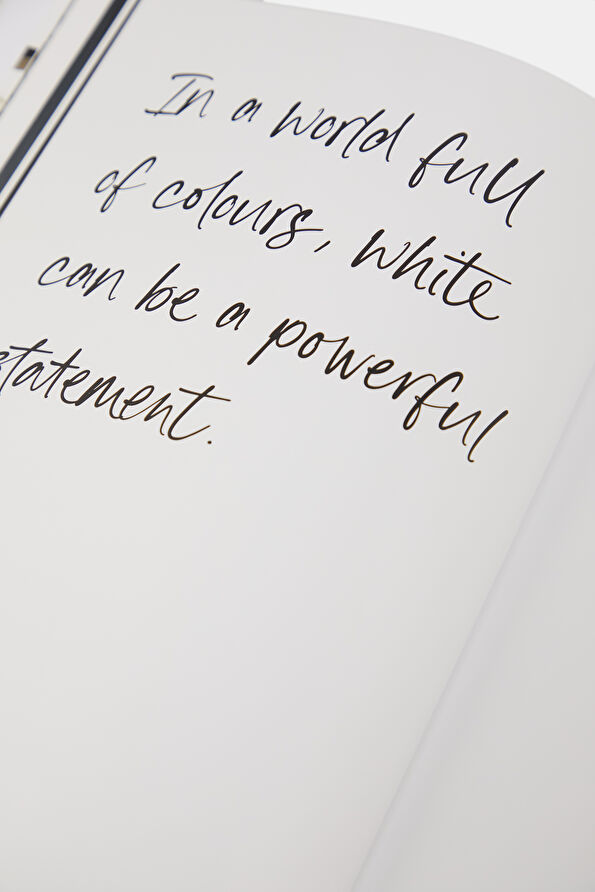 In a world full
of colours, white
can be a powerful
statement.